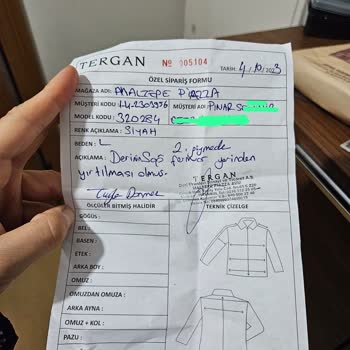 TERGAN
No 005104
TARİH: 4/10/2023
ÖZEL SİPARİŞ FORMU
MAĞAZA ADI: MALTEPE PIAZZA
MÜŞTERİ KODU: MÜŞTERİ ADI: PINAR
MODEL KODU: 320284
RENK AÇIKLAMA: SİYAH
BEDEN: L
2. giymede
AÇIKLAMA: Derinin Sağ fermuar yerinden
yırtılması olmuş.
TERGAN
ÖLÇÜLER BİTMİŞ HALİDİR
TEKNİK ÇİZELGE
GÖĞÜS:
BEL:
BASEN:
ETEK:
ARKA BOY:
OMUZ:
OMUZDAN OMUZA:
ARKA AYNA:
OMUZ + KOL:
PAZU: